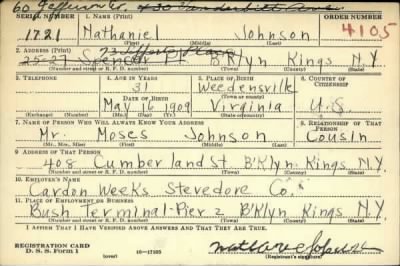 60 Jefferson Av. 430 Vanderbilt Ave
SERIAL NUMBER 1. NAME (Print) ORDER NUMBER
1721 Nathaniel Johnson 4105
(First) (Middle) (Last)
2. ADDRESS (Print) 73 Jefferson Place
25-27 Spencer Pl B'Klyn Kings N.Y.
(Number and street or R. F. D. number) (Town) (County) (State)
3. TELEPHONE 4. AGE IN YEARS 5. PLACE OF BIRTH 6. COUNTRY OF CITIZENSHIP
31 Weedensvilk
DATE OF BIRTH
May 16 1909 Virginia U.S.
(Exchange) (Number) (Mo.) (Day) (Yr.) (State or country)
7. NAME OF PERSON WHO WILL ALWAYS KNOW YOUR ADDRESS 8. RELATIONSHIP OF THAT PERSON
Mr. Moses Johnson Cousin
(Mr., Mrs., Miss) (First) (Middle) (Last)
9. ADDRESS OF THAT PERSON
408 Cumberland St. B'Klyn Kings N.Y.
(Number and street or R. F. D. number) (Town) (County) (State)
10. EMPLOYER'S NAME
Cardon Weeks Stevedore Co.
11. PLACE OF EMPLOYMENT OR BUSINESS
Bush Terminal-Pier 2 B'Klyn Kings N.Y.
(Number and street or R. F. D. number) (Town) (County) (State)
I AFFIRM THAT I HAVE VERIFIED ABOVE ANSWERS AND THAT THEY ARE TRUE.
REGISTRATION CARD
D. S. S. Form 1 (over) 16-17105 (Registrant's signature)